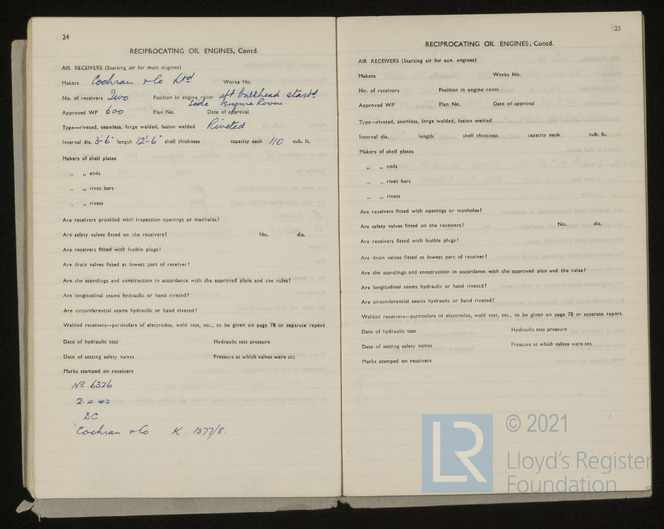 24
RECIPROCATING OIL ENGINES, Contd.
AIR RECEIVERS (Starting air for main engines)
Makers Cochran & Co Ltd Works No.
No. of receivers Two Position in engine room aft bulkhead starbd
side Engine Room.
Approved WP 600 Plan No. Date of approval
Type—riveted, seamless, forge welded, fusion welded Riveted
Internal dia. 3'-6" length 12'-6" shell thickness capacity each 110 cub. ft.
Makers of shell plates
„ „ ends
„ „ rivet bars
„ „ rivets
Are receivers provided with inspection openings or manholes?
Are safety valves fitted on the receivers? No. dia.
Are receivers fitted with fusible plugs?
Are drain valves fitted at lowest part of receiver?
Are the scantlings and construction in accordance with the approved plans and the rules?
Are longitudinal seams hydraulic or hand riveted?
Are circumferential seams hydraulic or hand riveted?
Welded receivers—particulars of electrodes, weld test, etc., to be given on page 78 or separate report
Date of hydraulic test Hydraulic test pressure
Date of setting safety valves Pressure at which valves were set
Marks stamped on receivers
No 6326
2.4.42
Cochran & Co K. 1377/8.
25
RECIPROCATING OIL ENGINES, Contd.
AIR RECEIVERS (Starting air for aux. engines)
Makers Works No.
No. of receivers Position in engine room
Approved WP Plan No. Date of approval
Type—riveted, seamless, forge welded, fusion welded
Internal dia. length shell thickness capacity each cub. ft.
Makers of shell plates
„ „ ends
„ „ rivet bars
„ „ rivets
Are receivers fitted with openings or manholes?
Are safety valves fitted on the receivers? No. dia.
Are receivers fitted with fusible plugs?
Are drain valves fitted at lowest part of receiver?
Are the scantlings and construction in accordance with the approved plan and the rules?
Are longitudinal seams hydraulic or hand riveted?
Are circumferential seams hydraulic or hand riveted?
Welded receivers—particulars of electrodes, weld test, etc., to be given on page 78 or separate report
Date of hydraulic test Hydraulic test pressure
Date of setting safety valves Pressure at which valves were set
Marks stamped on receivers
LR
© 2021
Lloyd's Register
Foundation